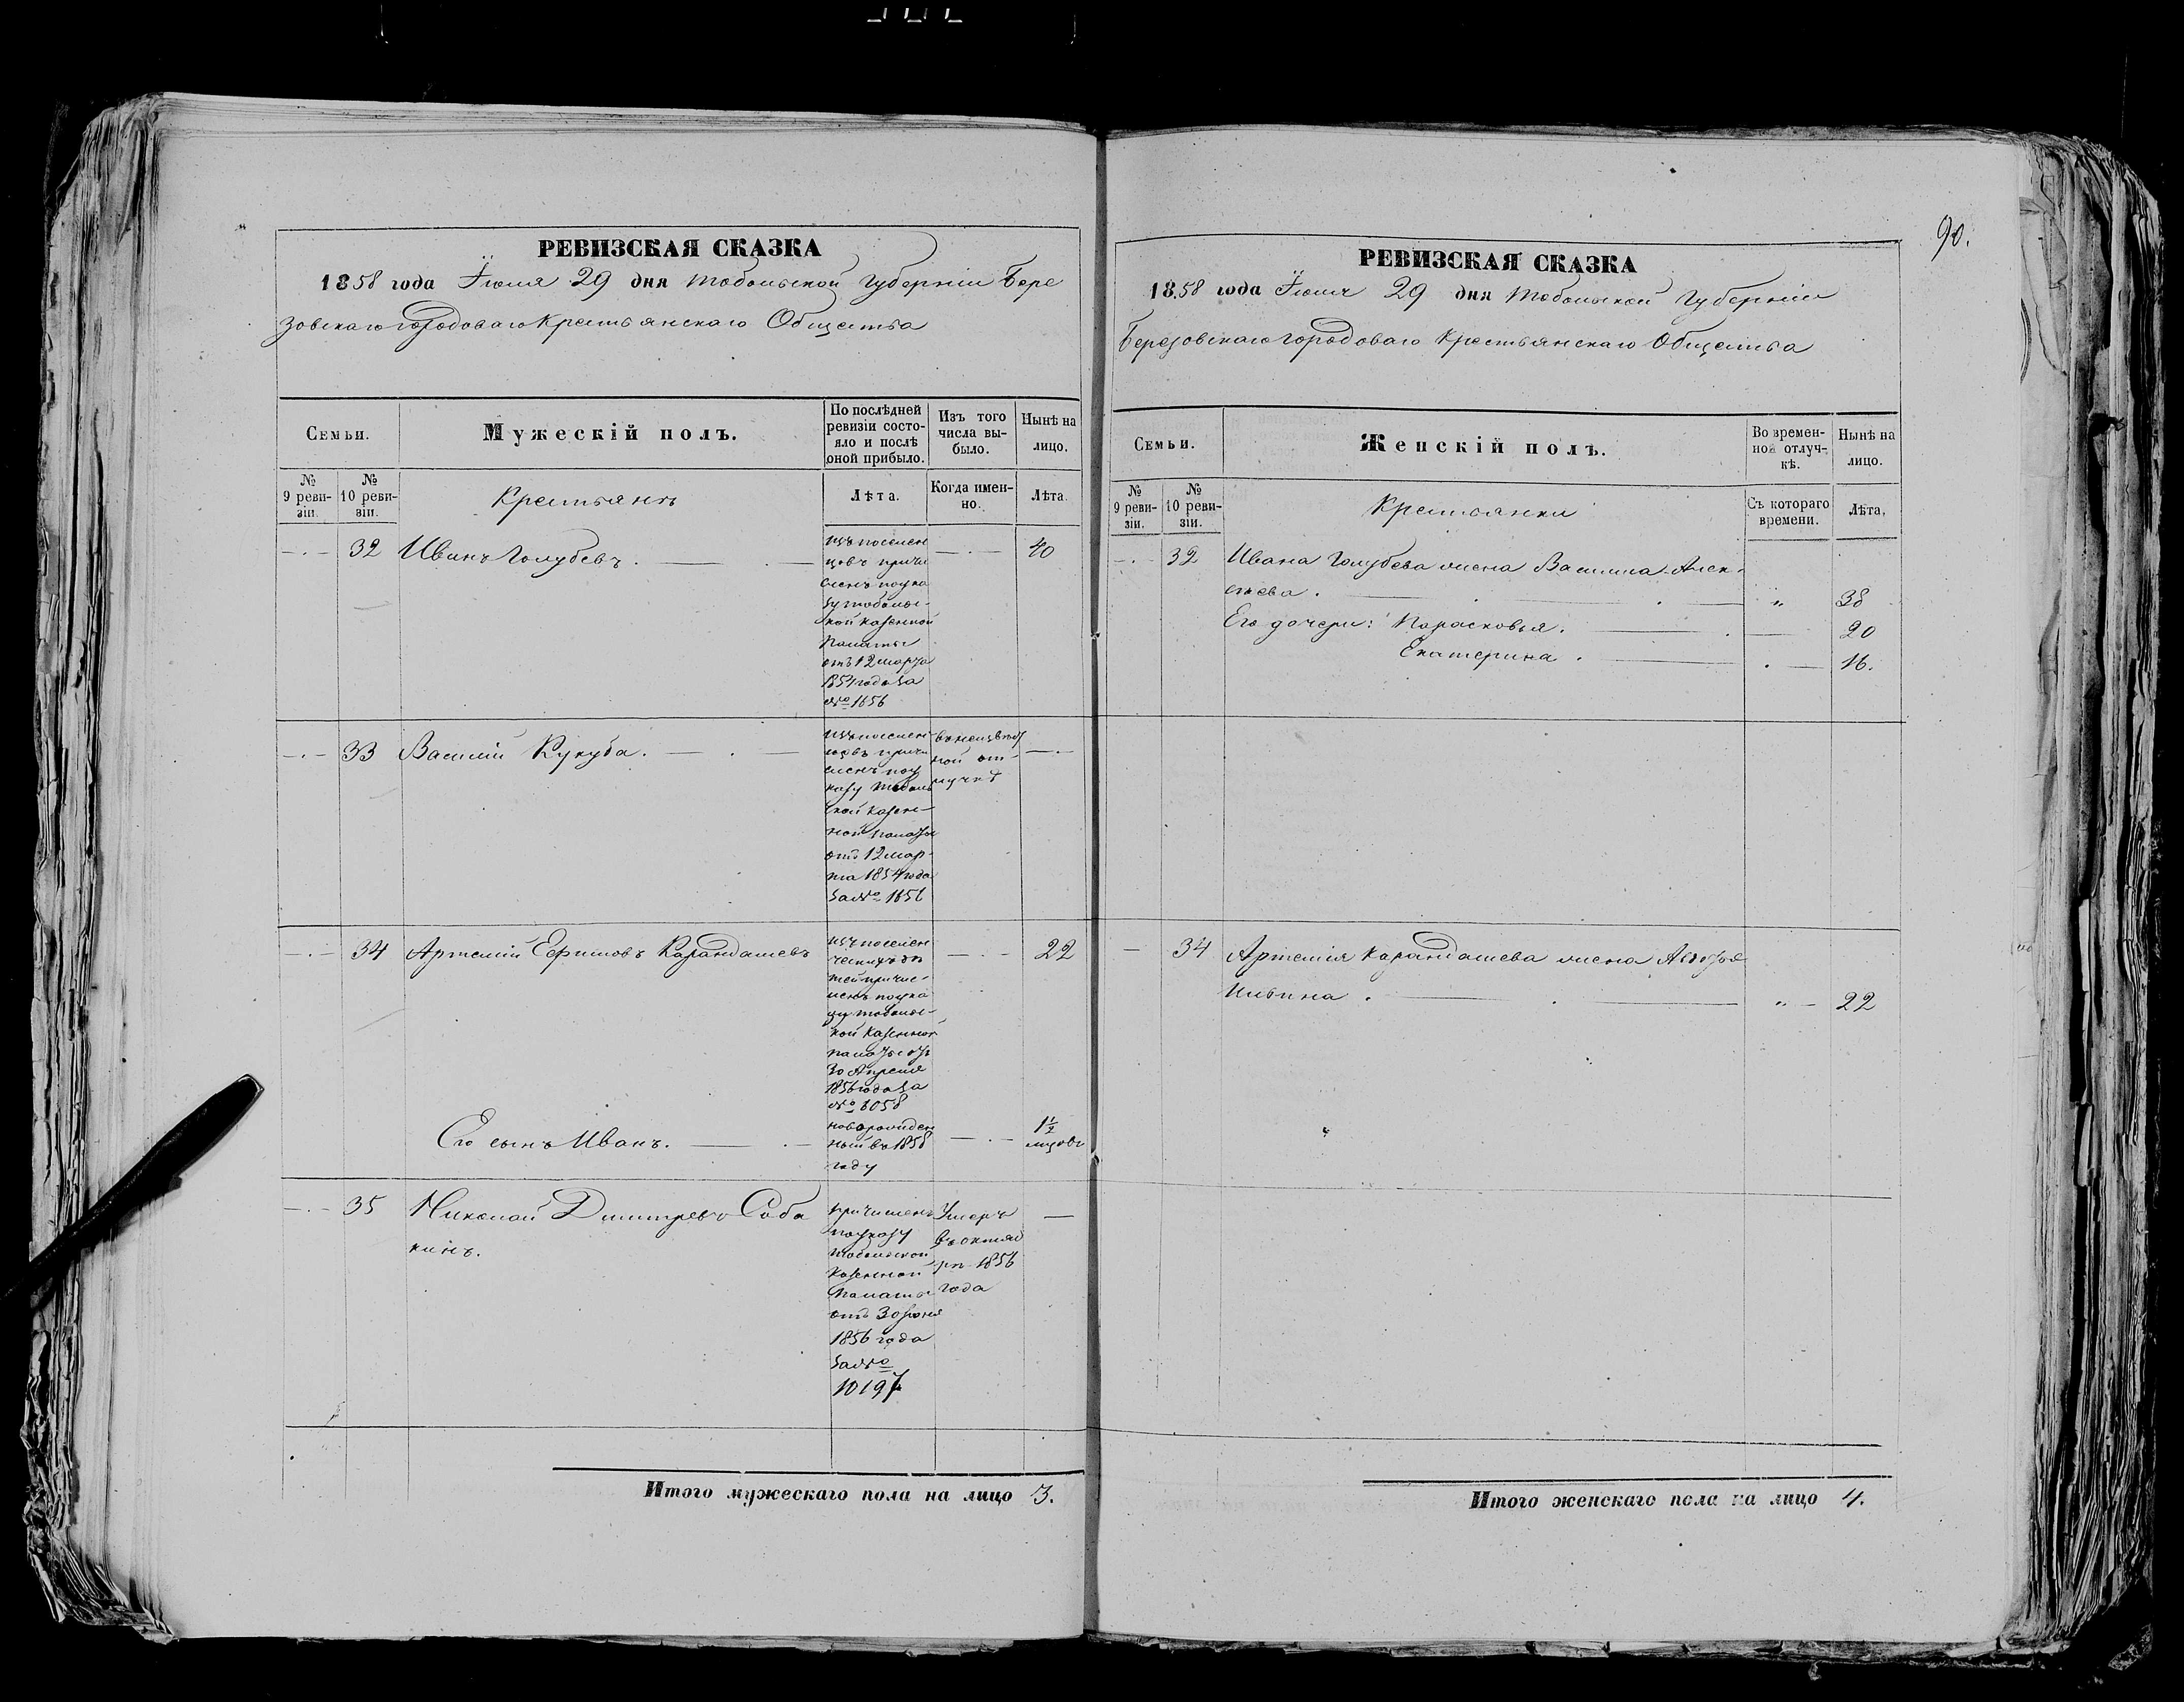 90.
РЕВИЗСКАЯ СКАЗКА
1858 года Іюля 29 дня Тобольской Губерніи Бере
зовскаго городоваго Крестьянскаго Общества
Семьи.
Мужескій полъ.
По послѣдней
ревизіи состо-
яло и послѣ
оной прибыло.
Изъ того
числа вы-
было.
Нынѣ на
лицо.
№
9 реви-
зіи.
№
10 реви-
зіи.
Крестьянъ
Лѣта.
Когда имен-
но.
Лѣта.
32 Иванъ Голубевъ.
изъ поселен
цовъ причи
сленъ по ука
зу Тоболь-
ской Казенной
Палаты
отъ 12 марта
1854 года за
№ 1656
40
33 Василій Кукуба.
изъ поселен
цовъ причи
сленъ по у
казу Тоболь
ской Казен-
ной Палаты
отъ 12 мар-
та 1854 года
за № 1656
въ неизвѣст
ной от-
лучкѣ
34 Артемій Ефимовъ Карандашевъ
изъ поселен
ческихъ дѣ
тей причис-
ленъ по ука
зу Тоболь-
ской Казенной
Палаты отъ
30 Апреля
1856 года за
№ 6058
22
Его сынъ Иванъ.
новорожден
ный въ 1858
году
1½
мцовъ
35 Николай Дмитревъ Соба
кинъ.
причисленъ
по указу
Тобольской
Казенной
Палаты
отъ 30 Іюня
1856 года
за №
10197
Умеръ
въ октяб
рѣ 1856
года
Итого мужескаго пола на лицо 3.
РЕВИЗСКАЯ СКАЗКА
1858 года Іюля 29 дня Тобольской Губерніи
Березовскаго городоваго Крестьянскаго Общества
Семьи.
Женскій полъ.
Во времен-
ной отлуч-
кѣ.
Нынѣ на
лицо.
№
9 реви-
зіи.
№
10 реви-
зіи.
Крестьянки
Съ котораго
времени.
Лѣта.
32 Ивана Голубева жена Василиса Алек-
сѣева. 38
Его дочери: Парасковья. 20
Екатерина. 16.
34 Артемія Карандашева жена Авдотья
Ильина. 22
Итого женскаго пола на лицо 4.